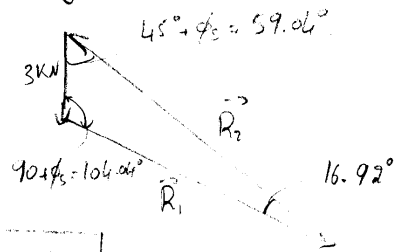 45°+ϕs = 59.04°
3KN
R⃗2
90+ϕs=104.04°
R⃗1
16.92°